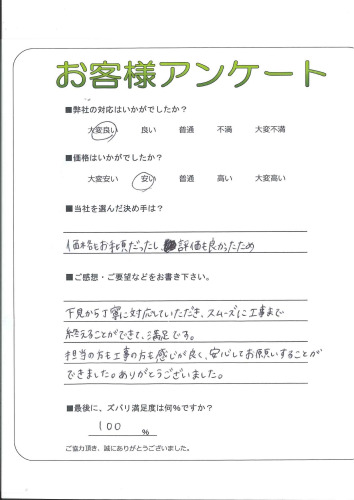 お客様アンケート
■弊社の対応はいかがでしたか？
大変良い 良い 普通 不満 大変不満
■価格はいかがでしたか？
大変安い 安い 普通 高い 大変高い
■当社を選んだ決め手は？
価格もお手頃だったし、評価も良かったため
■ご感想・ご要望などをお書き下さい。
下見から丁寧に対応していただき、スムーズに工事まで
終えることができて、満足です。
担当の方も工事の方も感じが良く、安心してお願いすることが
できました。ありがとうございました。
■最後に、ズバリ満足度は何%ですか？
100 %
ご協力頂き、誠にありがとうございました。